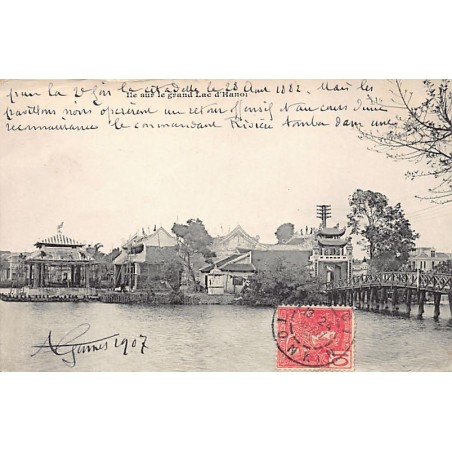 pour la 2e fois la citadelle le 28 Avril 1882. Mais les
Ile sur le grand Lac d'Hanoï
pavillons noirs opérèrent un retour offensif et au cours d'une
reconnaissance le commandant Rivière tomba dans une
1907
10